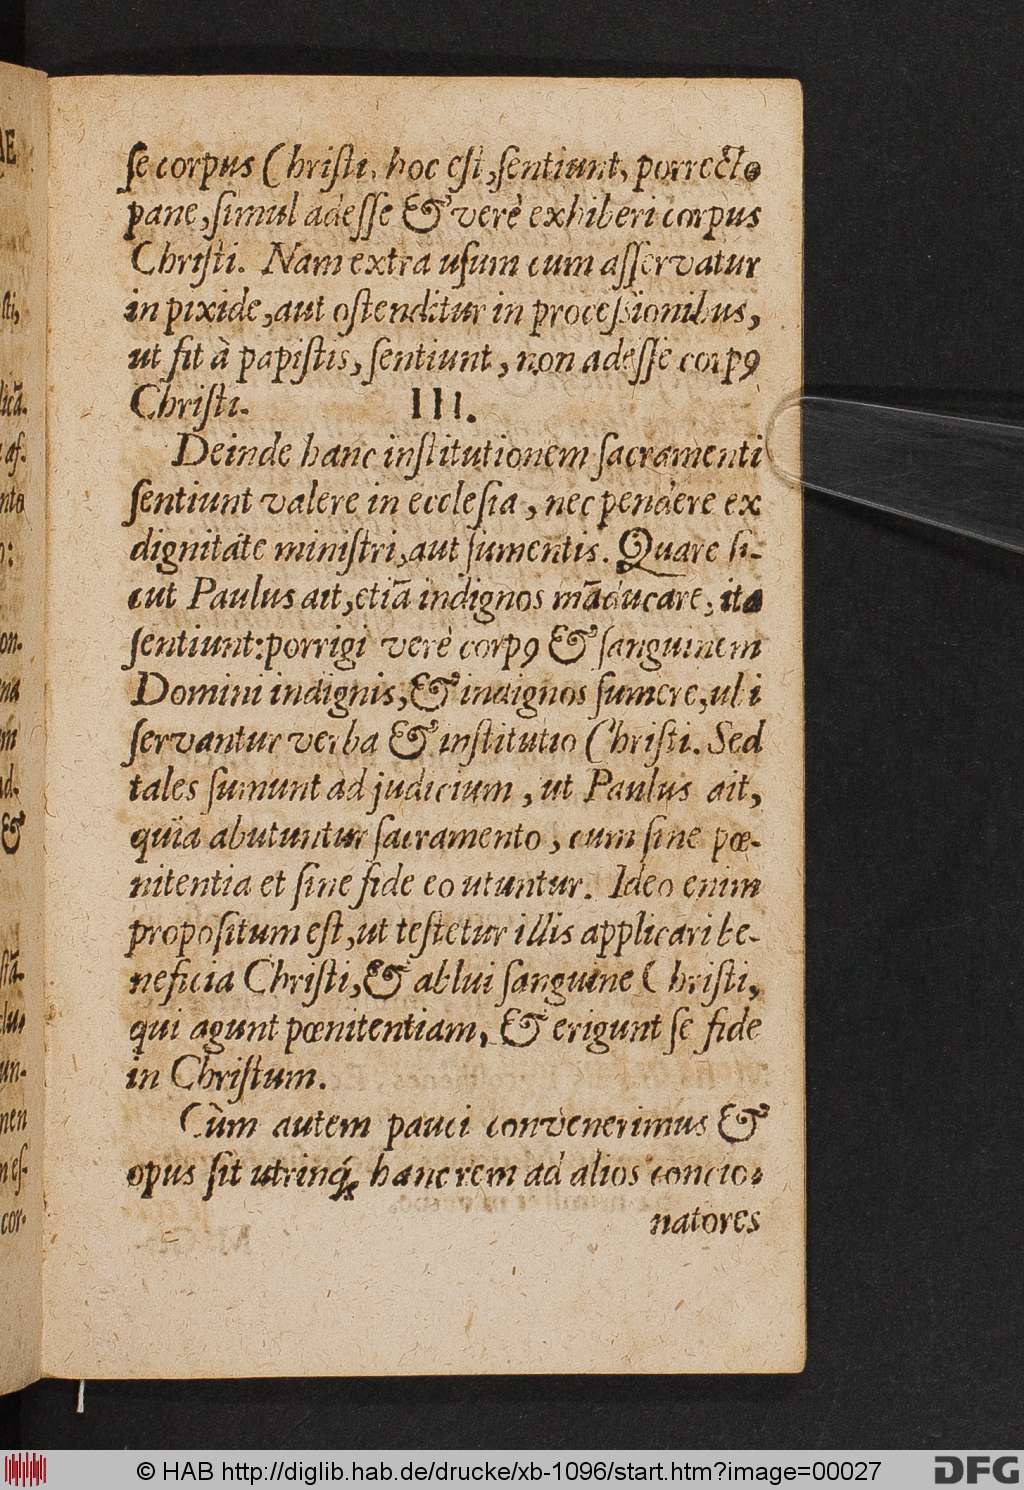 se corpus Christi, hoc est, sentiunt, porrecto
pane, simul adesse & verè exhiberi corpus
Christi. Nam extra usum cum asservatur
in pixide, aut ostenditur in processionibus,
ut fit à papistis, sentiunt, non adesse corpꝰ
Christi. III.
Deinde hanc institutionem sacramenti
sentiunt valere in ecclesia, nec pendere ex
dignitate ministri, aut sumentis. Quare si-
cut Paulus ait, etiā indignos māducare, ita
sentiunt: porrigi verè corpꝰ & sanguinem
Domini indignis, & indignos sumere, ubi
servantur verba & institutio Christi. Sed
tales sumunt ad judicium, ut Paulus ait,
quia abutuntur sacramento, cum sine pœ-
nitentia et sine fide eo utuntur. Ideo enim
propositum est, ut testetur illis applicari be-
neficia Christi, & ablui sanguine Christi,
qui agunt pœnitentiam, & erigunt se fide
in Christum.
Cùm autem pauci convenerimus &
opus sit utrinq́; hanc rem ad alios concio-
natores
© HAB http://diglib.hab.de/drucke/xb-1096/start.htm?image=00027
DFG